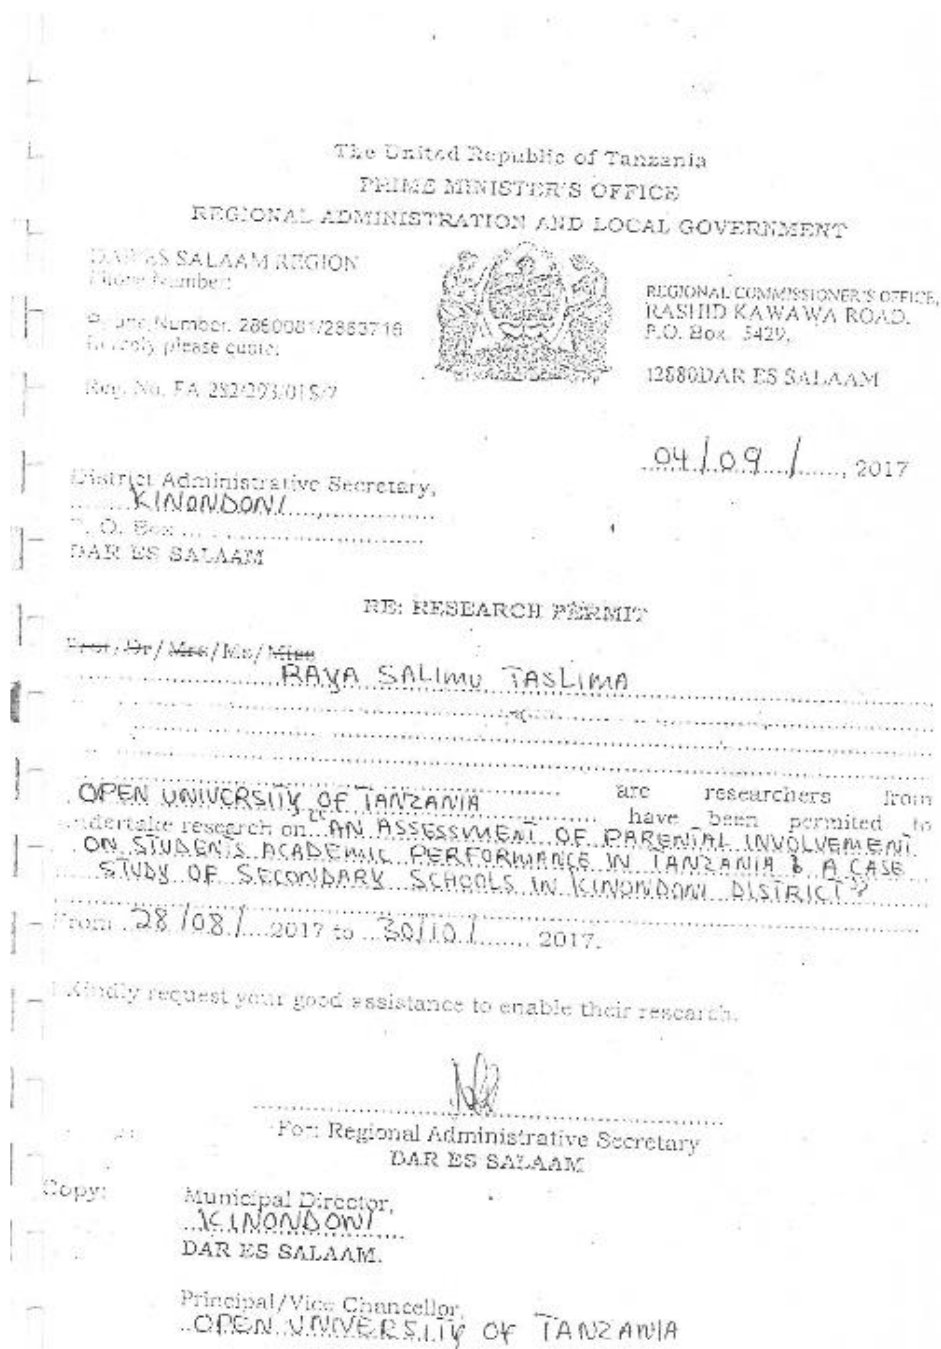 The United Republic of Tanzania
PRIME MINISTER'S OFFICE
REGIONAL ADMINISTRATION AND LOCAL GOVERNMENT
DAR ES SALAAM REGION
Phone Number:
Phone Number. 2860081/2863716
In reply please quote:
Reg. No. FA
REGIONAL COMMISSIONER'S OFFICE,
RASHID KAWAWA ROAD.
P.O. Box. 5429,
12880DAR ES SALAAM
04/09/......, 2017
District Administrative Secretary,
KINONDONI
P. O. Box
DAR ES SALAAM
RE: RESEARCH PERMIT
Prof/Dr/Mrs/Ms/Miss
RAYA SALIMU TASLIMA
OPEN UNIVERSITY OF TANZANIA are researchers from
have been permited to
undertake research on "AN ASSESSMENT OF PARENTAL INVOLVEMENT
ON STUDENTS ACADEMIC PERFORMANCE IN TANZANIA A CASE
STUDY OF SECONDARY SCHOOLS IN KINONDONI DISTRICT"
From 28/08/....2017 to ..30/10/...... 2017.
I Kindly request your good assistance to enable their research.
For: Regional Administrative Secretary
DAR ES SALAAM
Copy:
Municipal Director,
KINONDONI
DAR ES SALAAM.
Principal/Vice Chancellor,
OPEN UNIVERSITY OF TANZANIA